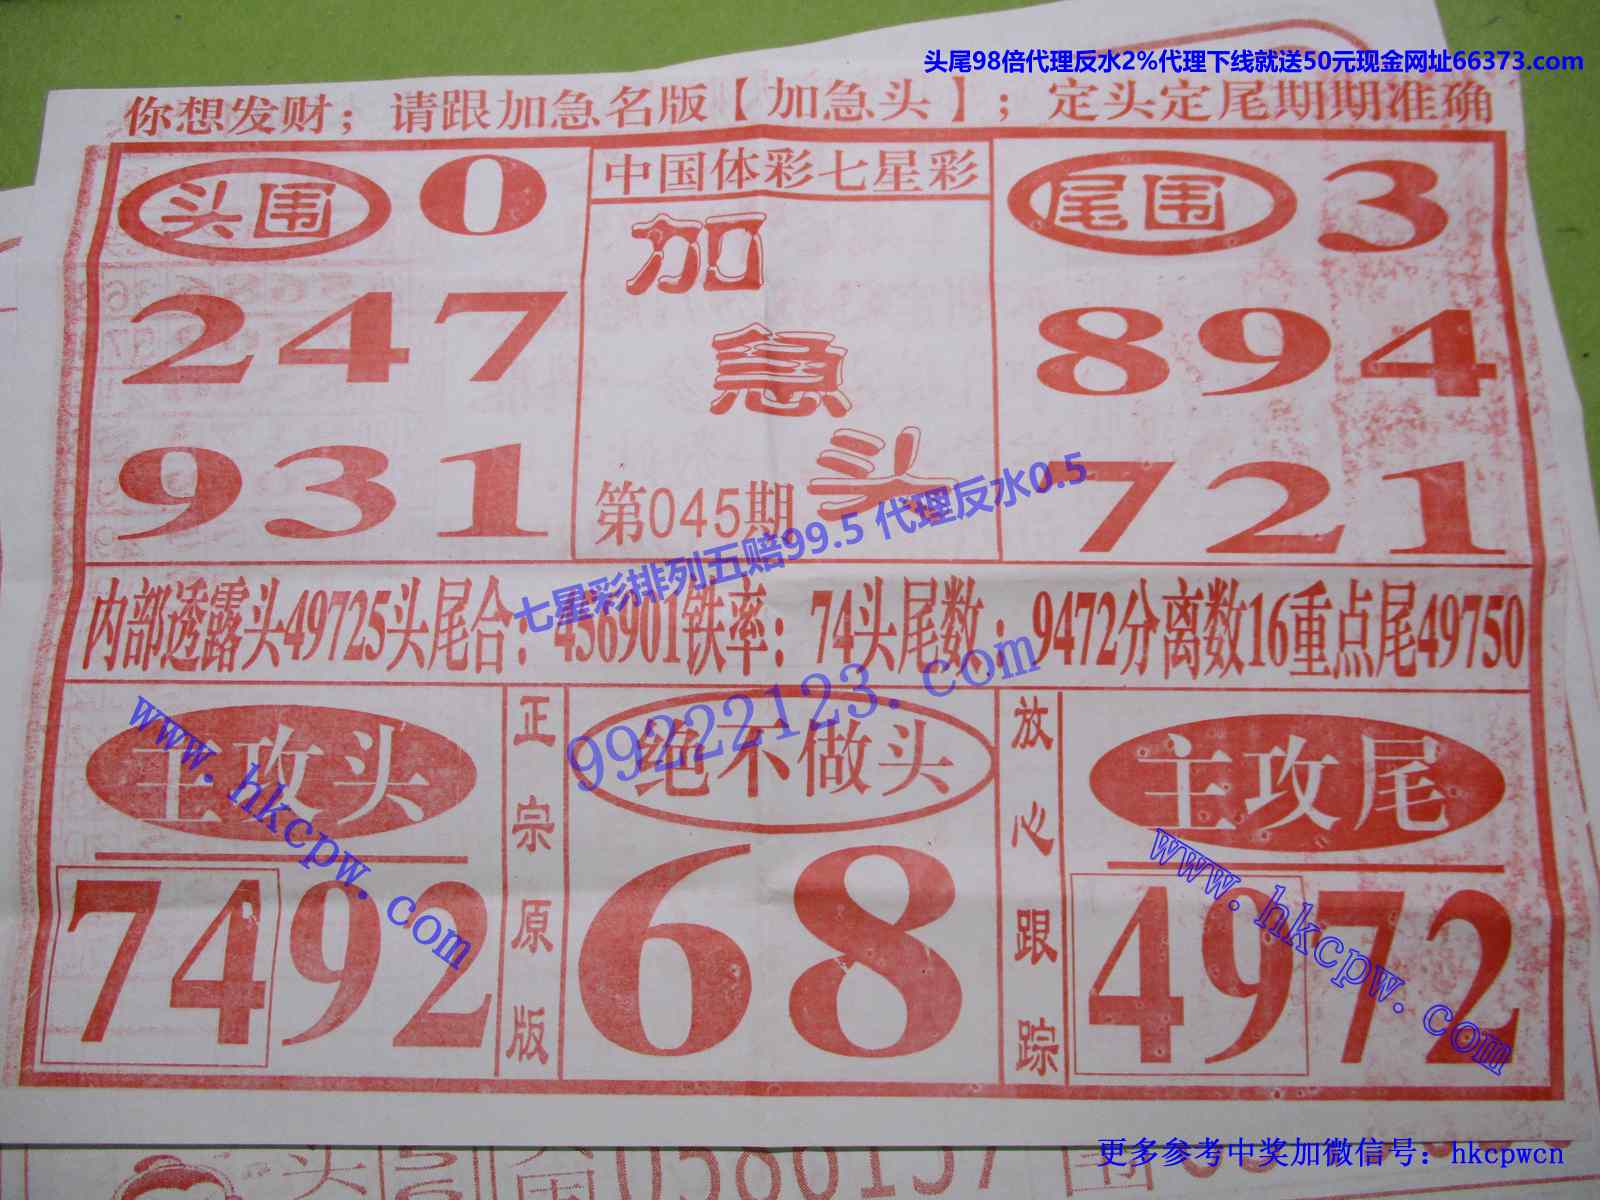 头尾98倍代理反水2%代理下线就送50元现金网址66373.com
你想发财；请跟加急名版【加急头】；定头定尾期期准确
头围 0
247
931
中国体彩七星彩
加
急
头
第045期
尾围 3
894
721
七星彩排列五赔99.5 代理反水0.5
内部透露头49725头尾合：456901铁率：74头尾数：9472分离数16重点尾49750
99222123.com
主攻头
7492
www.hkcpw.com
正宗原版
绝不做头
68
放心跟踪
主攻尾
4972
www.hkcpw.com
更多参考中奖加微信号：hkcpwcn